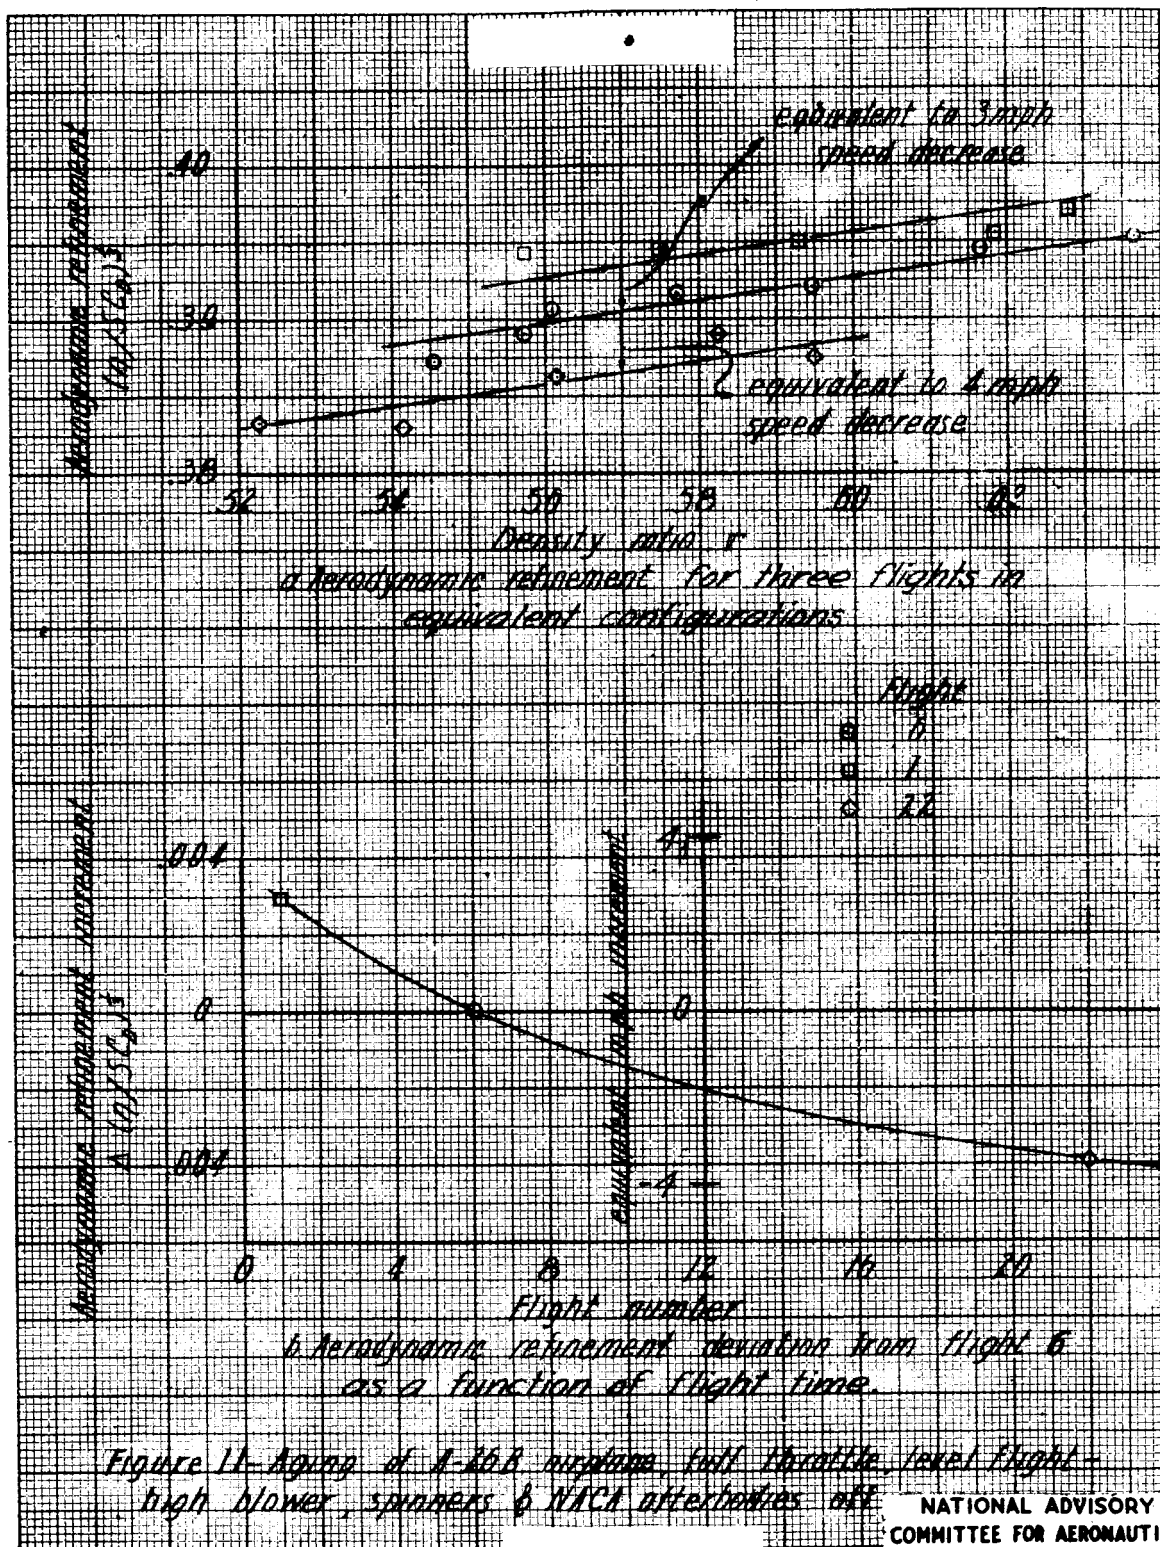 equivalent to 3 mph
speed decrease
Aerodynamic refinement
.40
.39
.38
equivalent to 4 mph
speed decrease
52 54 56 58 60 62
Density ratio
a Aerodynamic refinement for three flights in
equivalent configurations
Flight
6
1
22
Aerodynamic refinement increment
.004
0
.004
equivalent mph increment
4
0
-4
0 4 8 12 16 20
Flight number
b Aerodynamic refinement deviation from flight 6
as a function of flight time.
Figure 11-Aging of A-26B airplane, full throttle, level flight-
high blower, spinners & NACA afterbodies off
NATIONAL ADVISORY
COMMITTEE FOR AERONAUTI